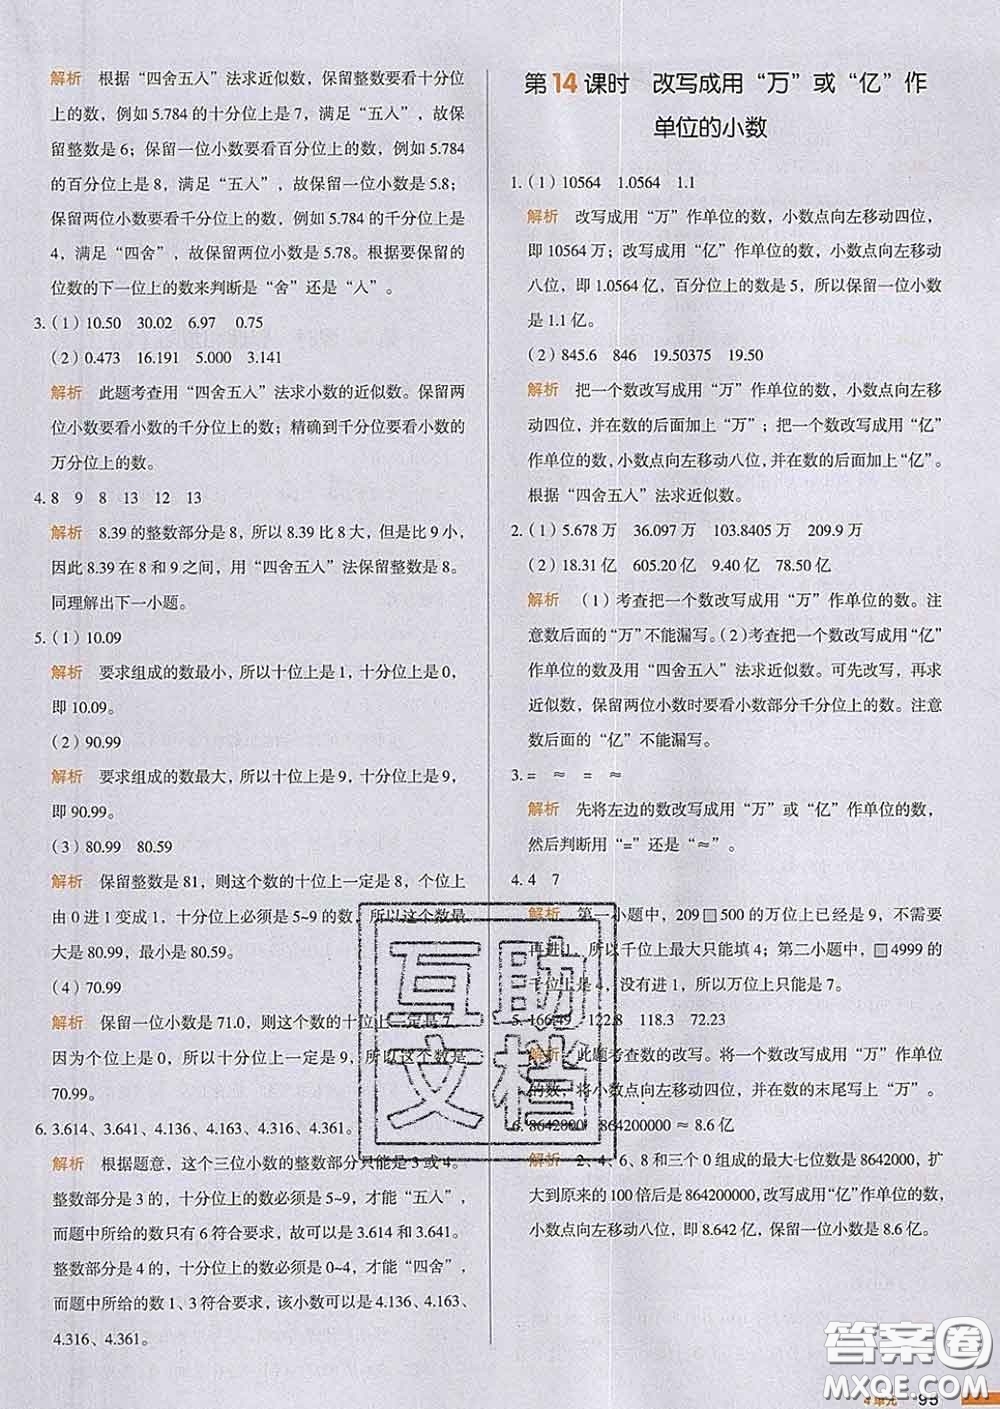 解析 根据“四舍五入”法求近似数，保留整数要看十分位
上的数，例如 5.784 的十分位上是 7，满足“五入”，故保
留整数是 6；保留一位小数要看百分位上的数，例如 5.784
的百分位上是 8，满足“五入”，故保留一位小数是 5.8；
保留两位小数要看千分位上的数，例如 5.784 的千分位上是
4，满足“四舍”，故保留两位小数是 5.78。根据要保留的
位数的下一位上的数来判断是“舍”还是“入”。
3. (1) 10.50 30.02 6.97 0.75
(2) 0.473 16.191 5.000 3.141
解析 此题考查用“四舍五入”法求小数的近似数。保留两
位小数要看小数的千分位上的数；精确到千分位要看小数的
万分位上的数。
4. 8 9 8 13 12 13
解析 8.39 的整数部分是 8，所以 8.39 比 8 大，但是比 9 小，
因此 8.39 在 8 和 9 之间，用“四舍五入”法保留整数是 8。
同理解出下一小题。
5. (1) 10.09
解析 要求组成的数最小，所以十位上是 1，十分位上是 0，
即 10.09。
(2) 90.99
解析 要求组成的数最大，所以十位上是 9，十分位上是 9，
即 90.99。
(3) 80.99 80.59
解析 保留整数是 81，则这个数的十位上一定是 8，个位上
由 0 进 1 变成 1，十分位上必须是 5~9 的数，所以这个数最
大是 80.99，最小是 80.59。
(4) 70.99
解析 保留一位小数是 71.0，则这个数的十位上一定是 7，
因为个位上是 0，所以十分位上一定是 9，所以这个数是
70.99。
6. 3.614、3.641、4.136、4.163、4.316、4.361。
解析 根据题意，这个三位小数的整数部分只能是 3 或 4。
整数部分是 3 的，十分位上的数必须是 5~9，才能“五入”，
而题中所给的数只有 6 符合要求，故可以是 3.614 和 3.641。
整数部分是 4 的，十分位上的数必须是 0~4，才能“四舍”，
而题中所给的数 1、3 符合要求，该小数可以是 4.136、4.163、
4.316、4.361。
第 14 课时 改写成用“万”或“亿”作
单位的小数
1. (1) 10564 1.0564 1.1
解析 改写成用“万”作单位的数，小数点向左移动四位，
即 10564 万；改写成用“亿”作单位的数，小数点向左移动
八位，即 1.0564 亿，百分位上的数是 5，所以保留一位小数
是 1.1 亿。
(2) 845.6 846 19.50375 19.50
解析 把一个数改写成用“万”作单位的数，小数点向左移
动四位，并在数的后面加上“万”；把一个数改写成用“亿”
作单位的数，小数点向左移动八位，并在数的后面加上“亿”。
根据“四舍五入”法求近似数。
2. (1) 5.678 万 36.097 万 103.8405 万 209.9 万
(2) 18.31 亿 605.20 亿 9.40 亿 78.50 亿
解析 (1) 考查把一个数改写成用“万”作单位的数。注
意数后面的“万”不能漏写。(2) 考查把一个数改写成用“亿”
作单位的数及用“四舍五入”法求近似数。可先改写，再求
近似数，保留两位小数时要看小数部分千分位上的数。注意
数后面的“亿”不能漏写。
3. = ≈ = ≈
解析 先将左边的数改写成用“万”或“亿”作单位的数，
然后判断用“=”还是“≈”。
4. 4 7
解析 第一小题中，209□500 的万位上已经是 9，不需要
再进 1，所以千位上最大只能填 4；第二小题中，□4999 的
千位上是 4，没有进 1，所以万位上只能是 7。
5. 166.49 122.8 118.3 72.23
解析 此题考查数的改写。将一个数改写成用“万”作单位
的数，将小数点向左移动四位，并在数的末尾写上“万”。
6. 8642000 864200000 ≈ 8.6 亿
解析 2、4、6、8 和三个 0 组成的最大七位数是 8642000，扩
大到原来的 100 倍后是 864200000，改写成用“亿”作单位的数，
小数点向左移动八位，即 8.642 亿，保留一位小数是 8.6 亿。
互助
文档
答案圈
MXQE.COM
4 单元 95